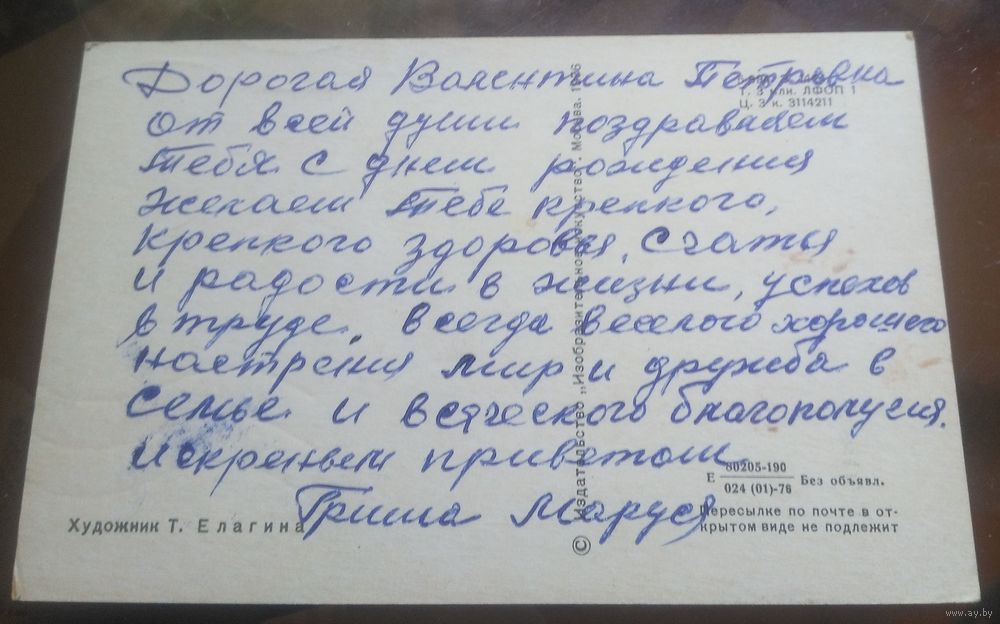 Дорогая Валентина Петровна
от всей души поздравляем
тебя с днем рождения
желаем тебе крепкого,
крепкого здоровья, счатья
и радости в жизни, успехов
в труде, всегда веселого хорошего
настрения мир и дружба в
семье и всяческого благополучия.
искреным приветом
Гриша Маруся
Т. 3 ЛФОП 1
Ц. 3 к. 3114211
© Издательство „Изобразительное искусство". Москва. 1976
Е 80205-190
024 (01)-76 Без объявл.
Пересылке по почте в от-
крытом виде не подлежит
Художник Т. Елагина
www.ay.by